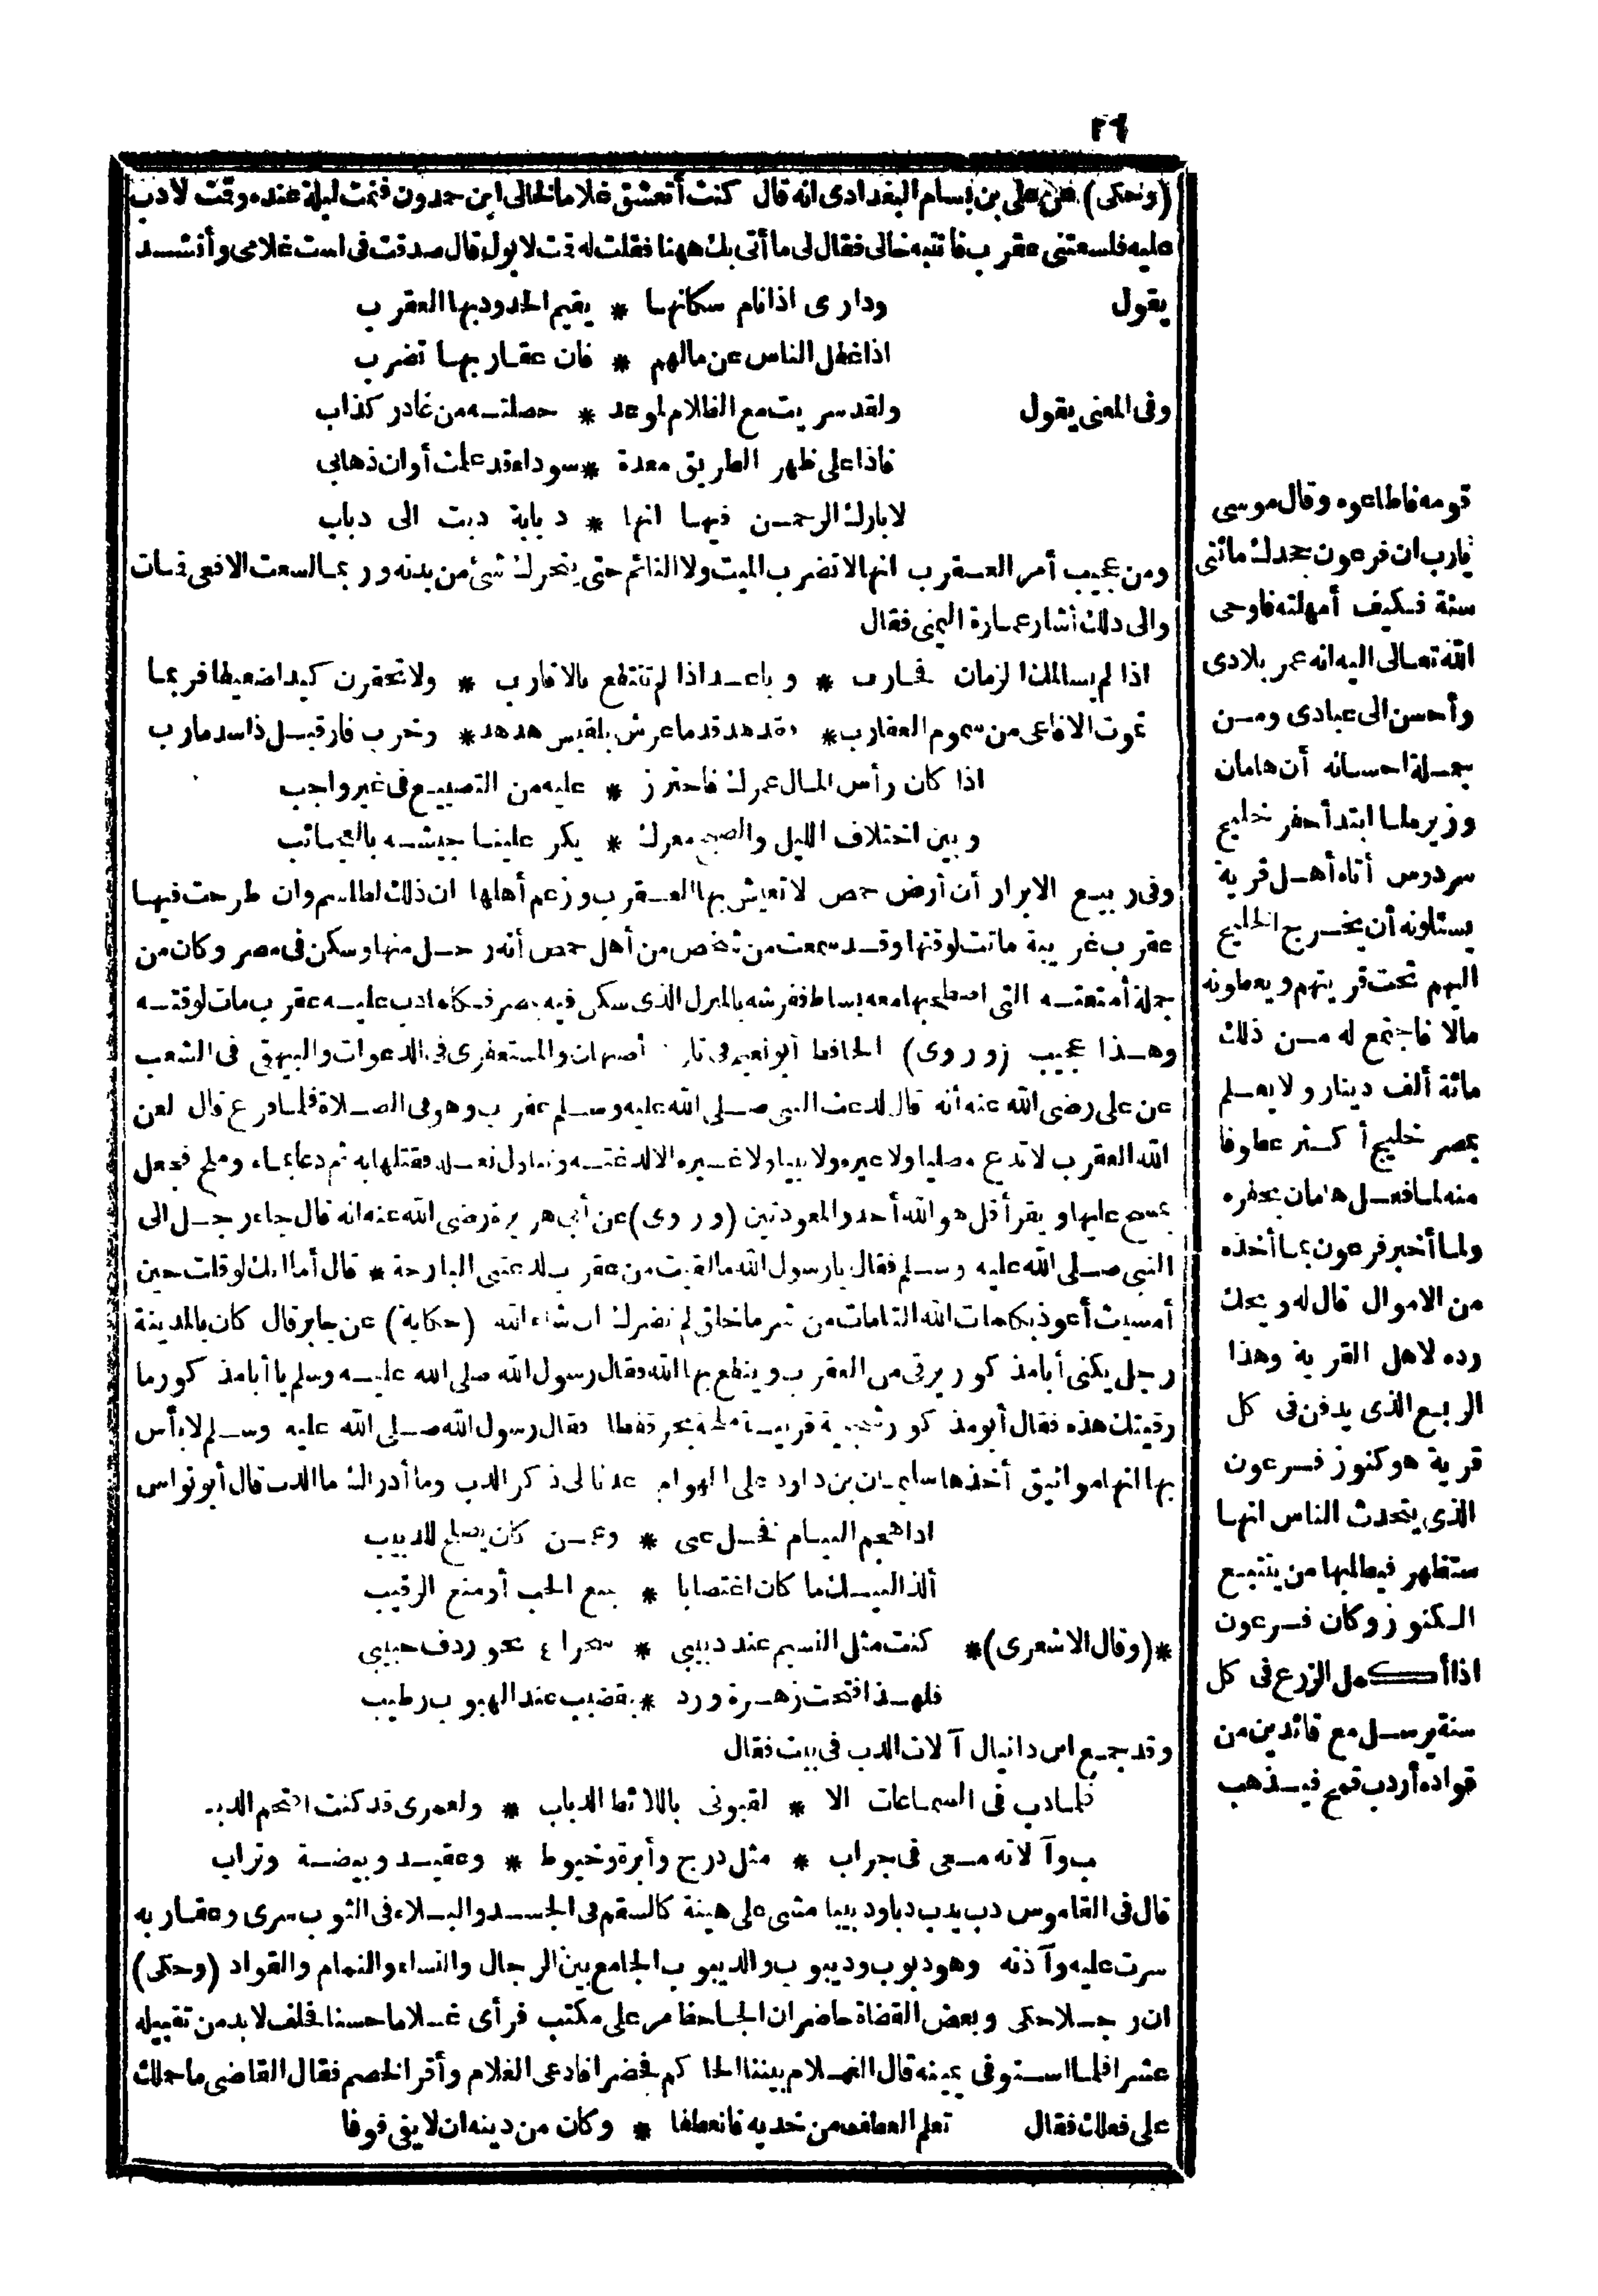 ٢٦
(وحكى) عن على بن بسام البغدادى انه قال كنت أتعشق غلاما لخالى ابن حمدون فنمت ليلة عنده وقمت لادب
عليه فلسعتنى عقرب فانتبه خالى فقال لى ما أتى بك ههنا فقلت له قمت لابول قال صدقت فى است غلامى وأنشد
يقول ودارى اذا نام سكانها * يقيم الحدود بها العقرب
اذا غفل الناس عن مالهم * فان عقاربها تضرب
وفى المعنى يقول ولقد سريت مع الظلام لموعد * حصلته من غادر كذاب
فاذا على ظهر الطريق معدة * سوداء قد علمت أوان ذهابى
لا بارك الرحمن فيها انها * دبابة دبت الى دباب
ومن عجيب أمر العقرب انها لا تضرب الميت ولا النائم حتى يتحرك شئ من بدنه وربما لسعت الافعى فمات
والى ذلك أشار عمارة اليمنى فقال
اذا لم يسالمك الزمان فحارب * وباعد اذا لم تنتفع بالاقارب * ولا تحقرن كيدا ضعيفا فربما
تموت الافاعى من سموم العقارب * وقد هد قدما عرش بلقيس هدهد * وخرب فار قبل ذا سد مارب
اذا كان رأس المال عمرك فاحترز * عليه من التضييع فى غير واجب
وبين اختلاف الليل والصبح معرك * يكر علينا جيشه بالعجائب
وفى ربيع الابرار أن أرض حمص لا تعيش بها العقرب وزعم أهلها ان ذلك لطلسم وان طرحت فيها
عقرب غريبة ماتت لوقتها وقد سمعت من شخص من أهل حمص أنه رحل منها وسكن فى مصر وكان من
جملة أمتعته التى اصطحبها معه بساط ففرشه بالمنزل الذى سكن فيه بمصر فكلما دب عليه عقرب مات لوقته
وهذا عجيب (وروى) الحافظ أبو نعيم فى تاريخ أصبهان والمستغفرى فى الدعوات والبيهقى فى الشعب
عن على رضى الله عنه أنه قال لدغت النبى صلى الله عليه وسلم عقرب وهو فى الصلاة فلما فرغ قال لعن
الله العقرب لا تدع مصليا ولا غيره ولا نبيا ولا غيره الا لدغته وتناول نعله فقتلها به ثم دعا بماء وملح فجعل
يمسح عليها ويقرأ قل هو الله أحد والمعوذتين (وروى) عن أبى هريرة رضى الله عنه انه قال جاء رجل الى
النبى صلى الله عليه وسلم فقال يا رسول الله ما لقيت من عقرب لدغتنى البارحة * قال أما انك لو قلت حين
أمسيت أعوذ بكلمات الله التامات من شر ما خلق لم تضرك ان شاء الله (حكاية) عن جابر قال كان بالمدينة
رجل يكنى أبا مذكور يرقى من العقرب وينفع بها الله فقال رسول الله صلى الله عليه وسلم يا أبا مذكور ما
رقيتك هذه فقال أبو مذكور شجية قرنية ملحة بحر قفطا فقال رسول الله صلى الله عليه وسلم لا بأس
بها انها مواثيق أخذها سليمان بن داود على الهوام عدنا لى ذكر الدب وما أدراك ما الدب قال أبو نواس
اذا هجم النيام فخل عنى * وعن كان يصلح للدبيب
ألذ النيك ما كان اغتصابا * بمنع الحب أو منع الرقيب
*(وقال الاشعرى)* كنت مثل النسيم عند دبيبى * سحرا ٤ نحو ردف حبيبى
فلهذا فتحت زهرة ورد * بقضيب عند الهبوب رطيب
وقد جمع ابن دانيال آلات الدب فى بيت فقال
فلما دب فى السماعات الا * لقبونى باللائط الدباب * ولعمرى قد كنت أقتحم الدبـ
ـب وآلاته معى فى جراب * مثل درج وأبرة وخيوط * وعقيد وبيضة وتراب
قال فى القاموس دب يدب دبا ودبيبا مشى على هينة كالسقم فى الجسد والبلاء فى الثوب سرى وعقاربه
سرت عليه وآذته وهو دبوب وديبوب والديبوب الجامع بين الرجال والنساء والنمام والقواد (وحكى)
ان رجلا حكى وبعض القضاة حاضر ان الجاحظ مر على مكتب فرأى غلاما حسنا فحلف لابد من تقبيله
عشرا فلما استوفى يمينه قال الغلام بيننا الحاكم فحضرا فادعى الغلام وأقر الخصم فقال القاضى ما حملك
على فعلك فقال تعلم العطف من خديه فانعطفا * وكان من دينه ان لا يفى فوفا
قومه فاطاعوه وقال موسى
يارب ان فرعون جحدك مائتى
سنة فكيف أمهلته فاوحى
الله تعالى اليه انه عمر بلادى
وأحسن الى عبادى ومن
جملة احسانه أن هامان
وزيره لما ابتدأ حفر خليج
سردوس أتاه أهل قرية
يسئلونه أن يخرج الخليج
اليهم تحت قريتهم ويعطونه
مالا فاجتمع له من ذلك
مائة ألف دينار ولا يعلم
بمصر خليج أكثر عطوفا
منه لما فعل هامان بحفره
ولما أخبر فرعون بما أخذه
من الاموال قال له ويحك
رده لاهل القرية وهذا
الربع الذى يدفن فى كل
قرية هو كنوز فرعون
الذى يتحدث الناس انها
ستظهر فيطلبها من يتتبع
الكنوز وكان فرعون
اذا أكمل الزرع فى كل
سنة يرسل مع قائدين من
قواده أردب قمح فيذهب